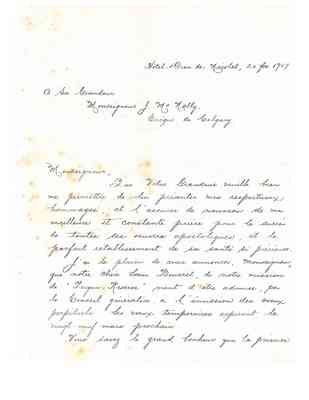 Hôtel-Dieu de Nicolet, 20 fév 1917
A Sa Grandeur
Monseigneur J. McNally,
Evêque de Calgary
Monseigneur,
Que Votre Grandeur veuille bien
me permettre de lui présenter mes respectueux
hommages et l'assurance de nouveau de ma
meilleure et constante prière pour le succès
de toutes ses œuvres apostoliques et le
parfait rétablissement de sa santé si précieuse.
J'ai le plaisir de vous annoncer, Monseigneur,
que notre chère Soeur de notre mission
de vient d'être admise, par
le Conseil général, à l'émission des voeux
perpétuels. Ses voeux temporaires expirent le
vingt neuf mars prochain.
Vous savez le grand bonheur que la